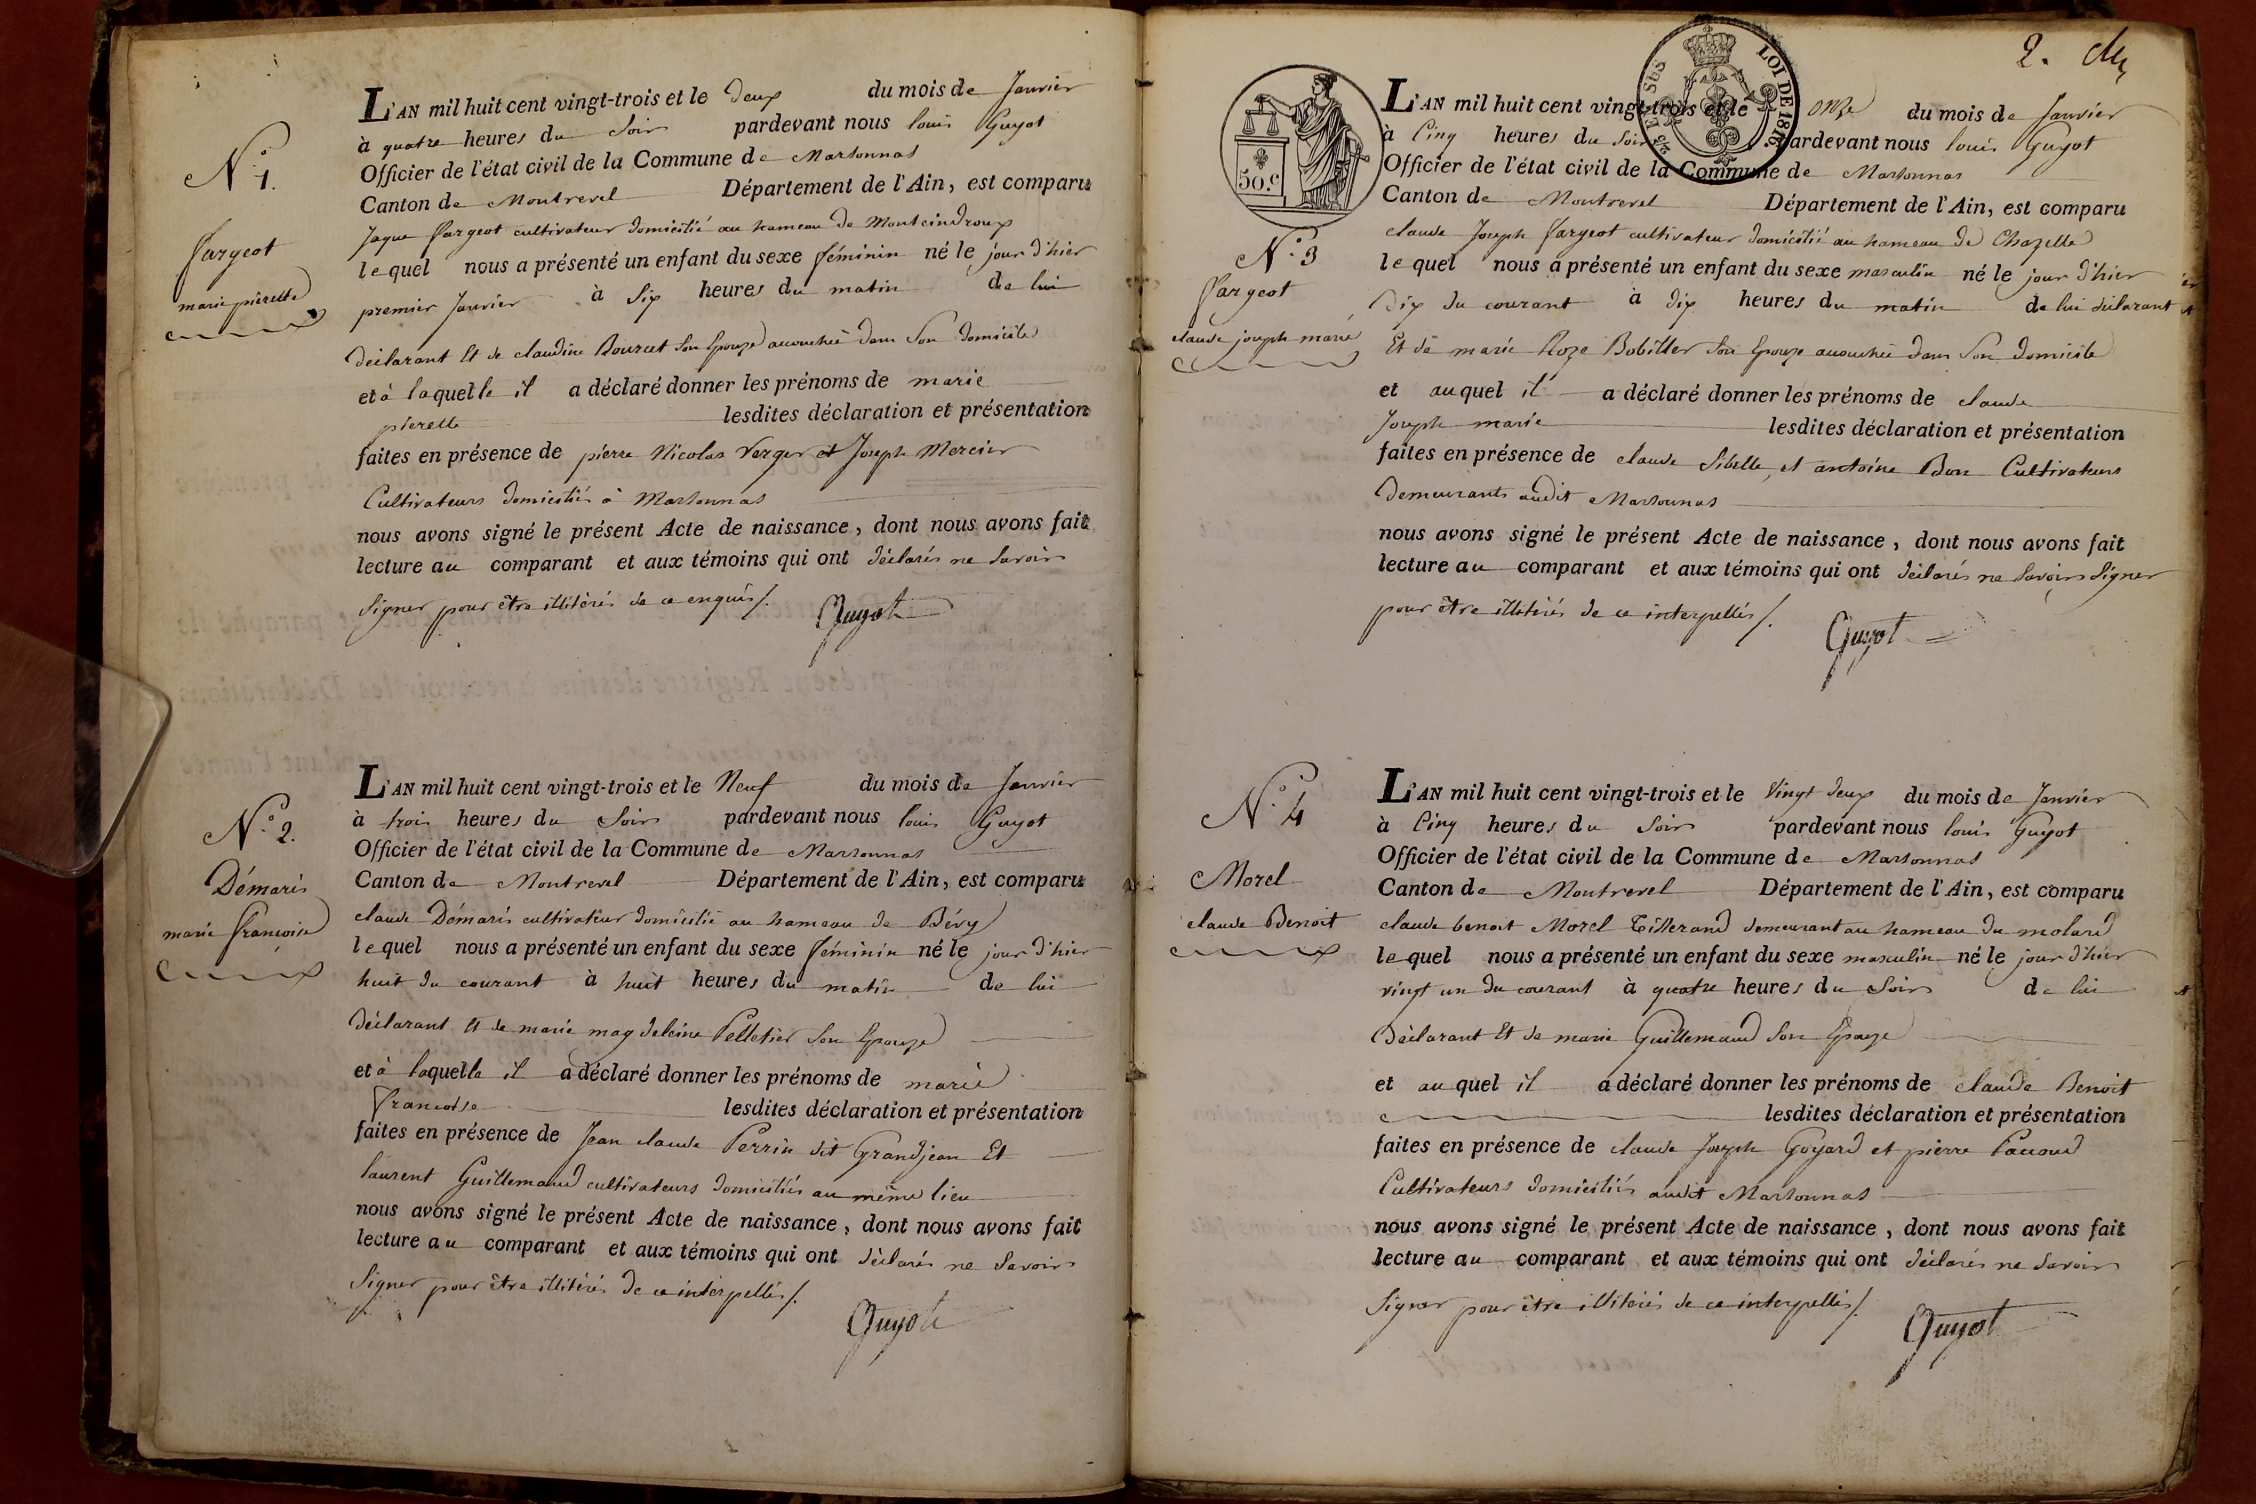 N.° 1.
Fargeot
marie pierette
L'AN mil huit cent vingt-trois et le deux du mois de Janvier
à quatre heures du Soir pardevant nous louis Guyot
Officier de l'état civil de la Commune de Marsonnas
Canton de Montrevel Département de l'Ain, est comparu
Jaque Fargeot cultivateur domicilié au hameau de Montcindroux
lequel nous a présenté un enfant du sexe féminin né le jour d'hier
premier Janvier à Six heures du matin de lui
déclarant Et de claudine Bourcet Son Epouze accouchée dans Son domicile
et à laquelle il a déclaré donner les prénoms de marie
pierette lesdites déclaration et présentation
faites en présence de pierre Nicolas Verger et Joseph Mercier
Cultivateurs domiciliés à Marsonnas
nous avons signé le présent Acte de naissance, dont nous avons fait
lecture au comparant et aux témoins qui ont déclarés ne Savoir
Signer pour être illitérés de ce enquis/.
Guyot
N.° 2.
Démaris
marie francoise
L'AN mil huit cent vingt-trois et le Neuf du mois de Janvier
à trois heures du Soir pardevant nous louis Guyot
Officier de l'état civil de la Commune de Marsonnas
Canton de Montrevel Département de l'Ain, est comparu
claude Démaris cultivateur domicilié au hameau de Bévy
lequel nous a présenté un enfant du sexe féminin né le jour d'hier
huit du courant à huit heures du matin de lui
déclarant Et de marie magdeleine Pelletier Son Epouze
et à laquelle il a déclaré donner les prénoms de marie
francoise lesdites déclaration et présentation
faites en présence de Jean claude Perrin dit Grandjean Et
laurent Guillemaud cultivateurs domiciliés au même lieu
nous avons signé le présent Acte de naissance, dont nous avons fait
lecture au comparant et aux témoins qui ont déclarés ne Savoir
Signer pour être illitérés de ce interpellés/.
Guyot
2.
50.c
LOI DE 1816.
N.° 3
Fargeot
claude joseph marie
L'AN mil huit cent vingt-trois et le onze du mois de Janvier
à Cinq heures du Soir pardevant nous louis Guyot
Officier de l'état civil de la Commune de Marsonnas
Canton de Montrevel Département de l'Ain, est comparu
claude Joseph Fargeot cultivateur domicilié au hameau de Chazelle
lequel nous a présenté un enfant du sexe masculin né le jour d'hier
Dix du courant à dix heures du matin de lui déclarant
Et de marie Roze Bobiller Son Epouze accouchée dans Son domicile
et auquel il a déclaré donner les prénoms de claude
Joseph marie lesdites déclaration et présentation
faites en présence de claude Sibelle, et antoine Bon Cultivateurs
demeurants audit Marsonnas
nous avons signé le présent Acte de naissance, dont nous avons fait
lecture au comparant et aux témoins qui ont déclarés ne Savoir Signer
pour être illitérés de ce interpellés/.
Guyot
N.° 4
Morel
claude Benoit
L'AN mil huit cent vingt-trois et le Vingt deux du mois de Janvier
à Cinq heures du Soir pardevant nous louis Guyot
Officier de l'état civil de la Commune de Marsonnas
Canton de Montrevel Département de l'Ain, est comparu
claude benoit Morel Tisserand demeurant au hameau du molard
lequel nous a présenté un enfant du sexe masculin né le jour d'hier
vingt un du courant à quatre heures du Soir de lui
Déclarant Et de marie Guillemaud Son Epouze
et auquel il a déclaré donner les prénoms de claude Benoit
lesdites déclaration et présentation
faites en présence de claude Joseph Goyard et pierre Pacoud
Cultivateurs domiciliés audit Marsonnas
nous avons signé le présent Acte de naissance, dont nous avons fait
lecture au comparant et aux témoins qui ont déclarés ne Savoir
Signer pour être illitérés de ce interpellés/.
Guyot